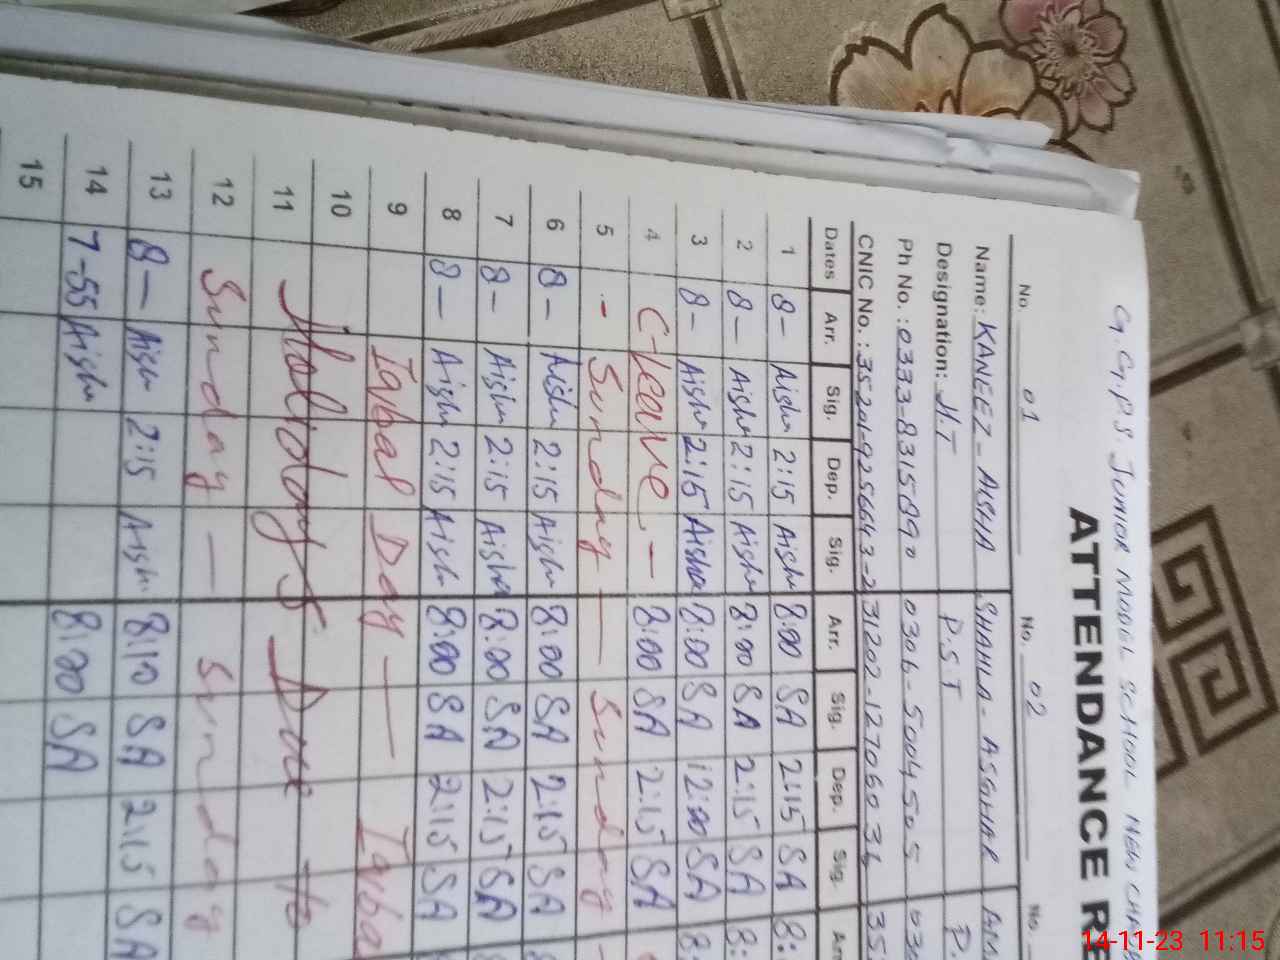 G.G.P.S. JUNIOR MODEL SCHOOL NEW
ATTENDANCE RE
No. 01 No. 02 No.
Name: KANEEZ - AISHA SHAHLA - ASGHAR AM
Designation: H.T P.S.T P.
Ph No.: 0333-8315890 0306-5004505 030
CNIC No.: 31202-1270603 35
Dates Arr. Sig. Dep. Sig. Arr. Sig. Dep. Sig. Arr
1 8- Aisha 2:15 Aisha 8:00 SA 2:15 SA 8:
2 8- Aisha 2:15 Aisha 8:00 SA 2:15 SA 8:
3 8- Aisha 2:15 Aisha 8:00 SA 12:00 SA 8:
4 C-leave - 8:00 SA 2:15 SA
5 - Sunday - Sunday -
6 8- Aisha 2:15 Aisha 8:00 SA 2:15 SA 8
7 8- Aisha 2:15 Aisha 8:00 SA 2:15 SA 8
8 8- Aisha 2:15 Aisha 8:00 SA 2:15 SA
9 Iqbal Day - Iqba
10
11 Holidays Due to
12 Sunday - Sunday
13 8- Aisha 2:15 Aisha 8:10 SA 2:15 SA
14 7-55 Aisha 8:00 SA
15
14-11-23 11:15